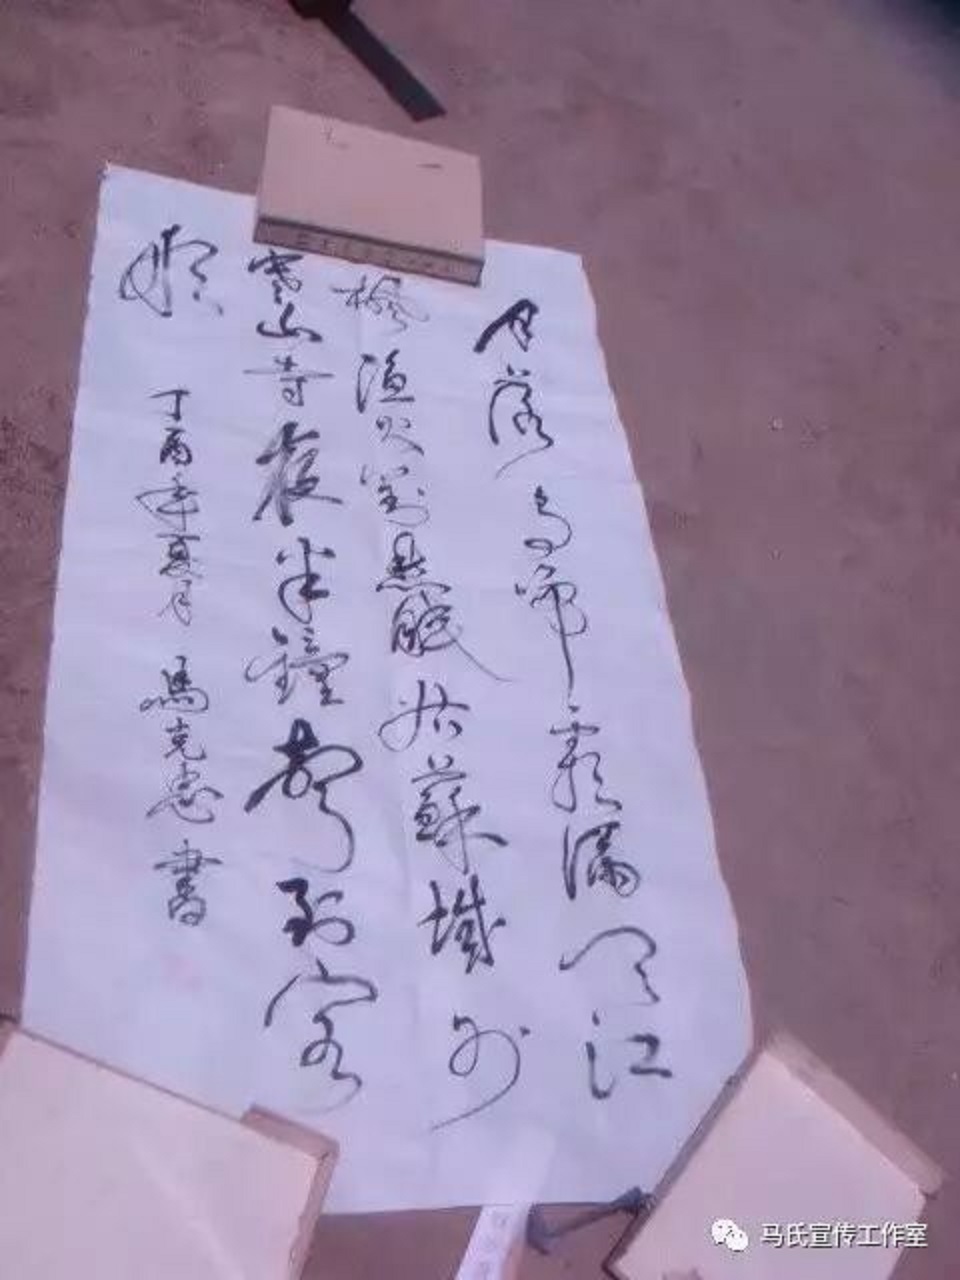 月落烏啼霜滿天江
楓漁火對愁眠姑蘇城外
寒山寺夜半鐘聲到客
船
丁酉年夏月 馬克忠書
马氏宣传工作室